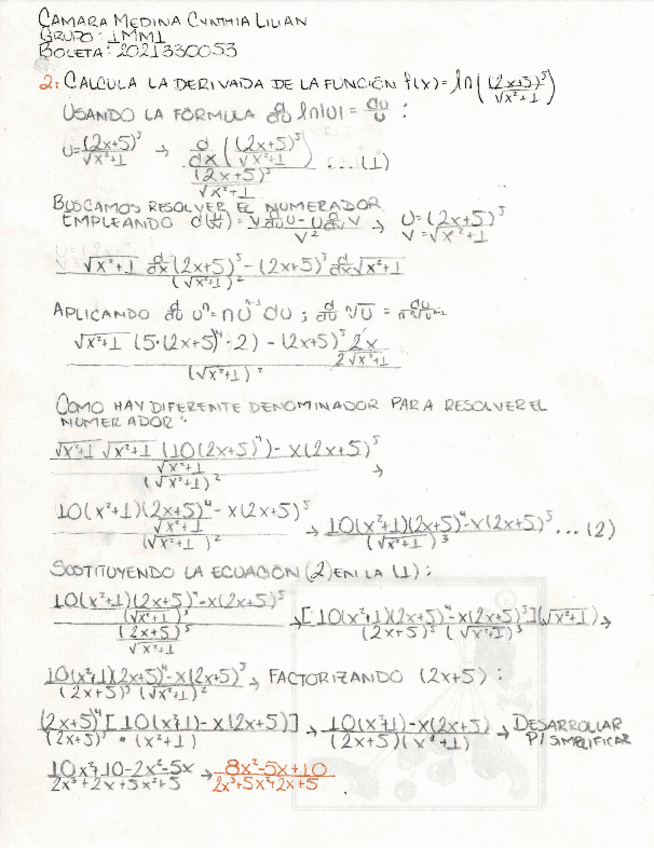 CAMARA MEDINA CYNTHIA LILIAN
GRUPO: 1MM1
BOLETA: 2021330053
2: CALCULA LA DERIVADA DE LA FUNCIÓN f(x) = ln((2x+5)^5/√(x²+1))
USANDO LA FÓRMULA d/du ln|u| = du/u :
U = (2x+5)^5/√(x²+1) → (d/dx((2x+5)^5/√(x²+1)))/((2x+5)^5/√(x²+1)) ...(1)
BUSCAMOS RESOLVER EL NUMERADOR
EMPLEANDO d(u/v) = (v d/du u - u d/dv v)/v² → U = (2x+5)^5
V = √(x²+1)
(√(x²+1) d/dx (2x+5)^5 - (2x+5)^5 d/dx √(x²+1))/(√(x²+1))²
APLICANDO d/du u^n = nu^(n-1) du ; d/du ⁿ√u = du/(n ⁿ√(u^(n-1)))
(√(x²+1) (5·(2x+5)^4·2) - (2x+5)^5 2x/(2√(x²+1)))/(√(x²+1))²
COMO HAY DIFERENTE DENOMINADOR PARA RESOLVER EL
NUMERADOR:
((√(x²+1) √(x²+1) (10(2x+5)^4) - x(2x+5)^5)/√(x²+1))/(√(x²+1))² →
((10(x²+1)(2x+5)^4 - x(2x+5)^5)/√(x²+1))/(√(x²+1))² → (10(x²+1)(2x+5)^4 - x(2x+5)^5)/(√(x²+1))³ ...(2)
SUSTITUYENDO LA ECUACIÓN (2) EN LA (1):
((10(x²+1)(2x+5)^4 - x(2x+5)^5)/(√(x²+1))³)/((2x+5)^5/√(x²+1)) → [10(x²+1)(2x+5)^4 - x(2x+5)^5](√(x²+1))/((2x+5)^5 (√(x²+1))³) →
(10(x²+1)(2x+5)^4 - x(2x+5)^5)/((2x+5)^5 (√(x²+1))²) → FACTORIZANDO (2x+5):
(2x+5)^4[10(x²+1) - x(2x+5)]/((2x+5)^5 · (x²+1)) → (10(x²+1) - x(2x+5))/((2x+5)(x²+1)) → DESARROLLAR
P/ SIMPLIFICAR
(10x²+10-2x²-5x)/(2x³+2x+5x²+5) → (8x²-5x+10)/(2x³+5x²+2x+5) .